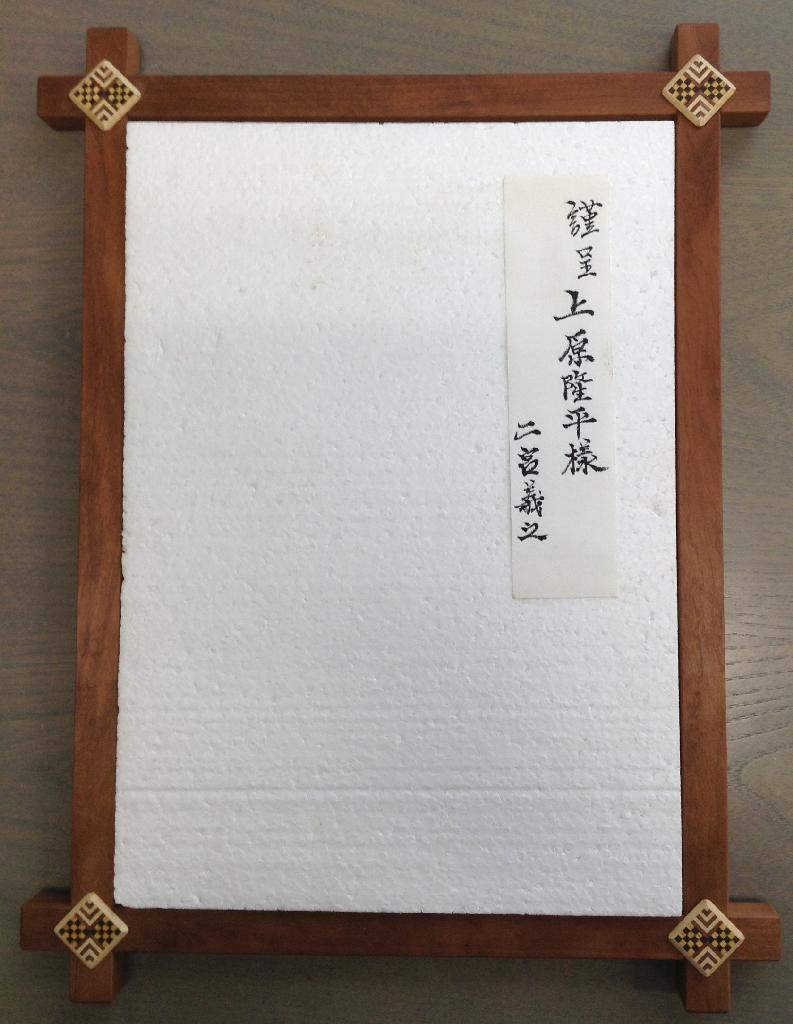 謹呈 上原隆平様
二宮義之